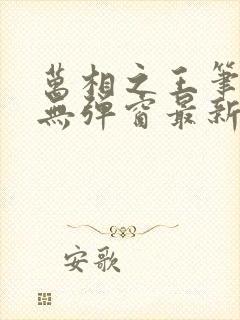 萬相之王筆
無彈窗最新
安歌